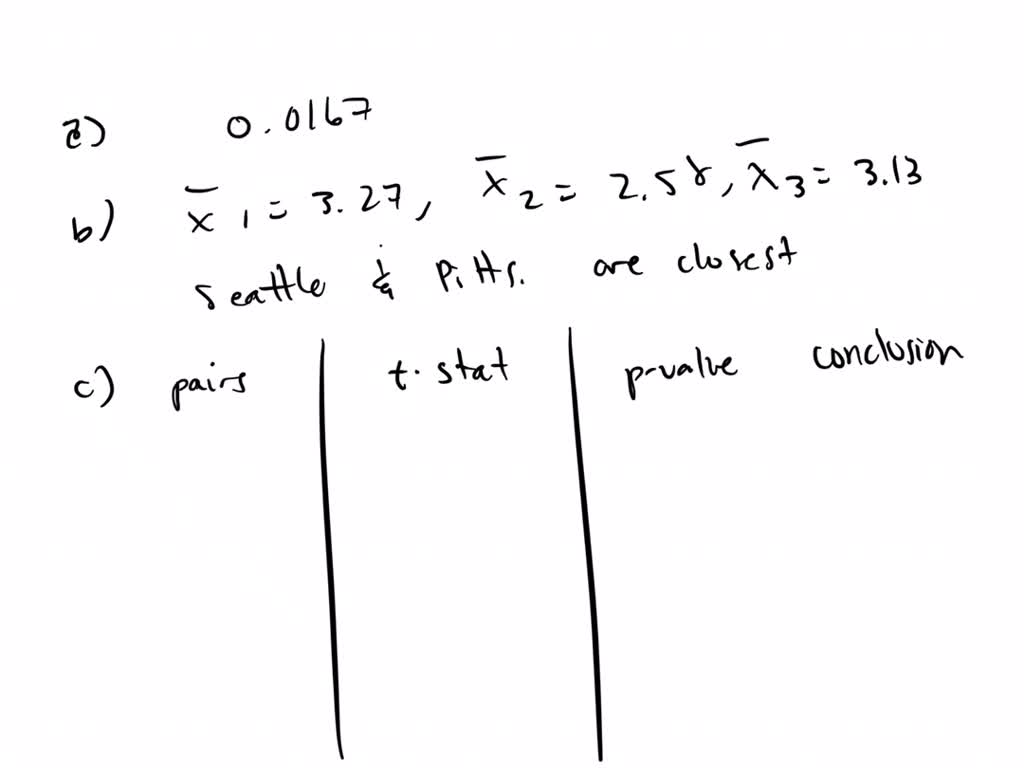 a) 0.0167
b) x̄ 1 = 3.27, x̄ 2 = 2.58, x̄ 3 = 3.13
Seattle & Pitts. are closest
c) pairs t. stat p-value conclusion